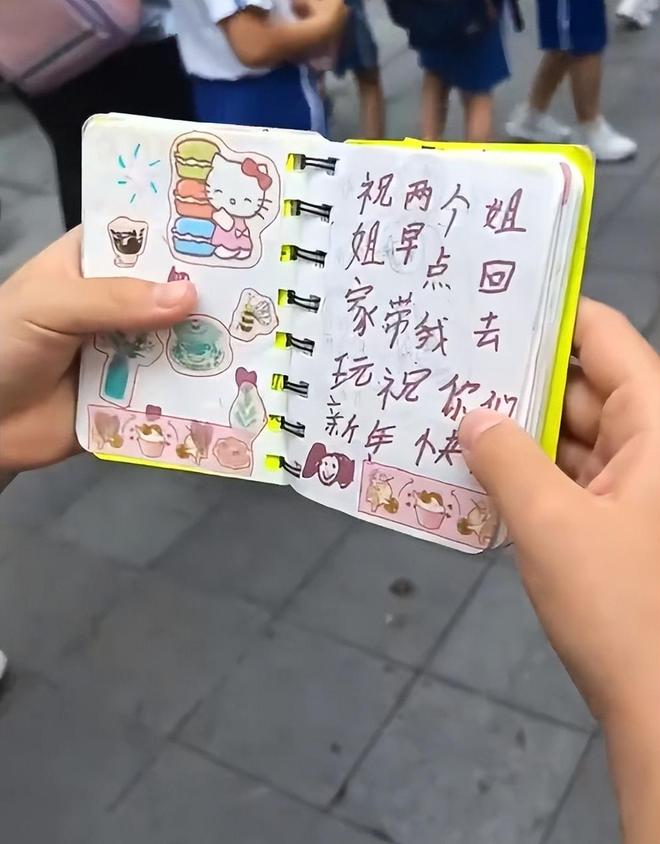 祝两个姐
姐早点回
家带我去
玩祝你们
新年快